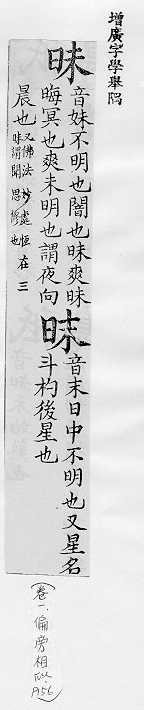 增廣字學舉隅
昧
音妹不明也闇也昧爽昧
晦冥也爽未明也謂夜向
晨也
又佛法妙處恒在三
昧謂聞思修也
昩
音末日中不明也又星名
斗杓後星也
(卷一、偏旁相似、P56)